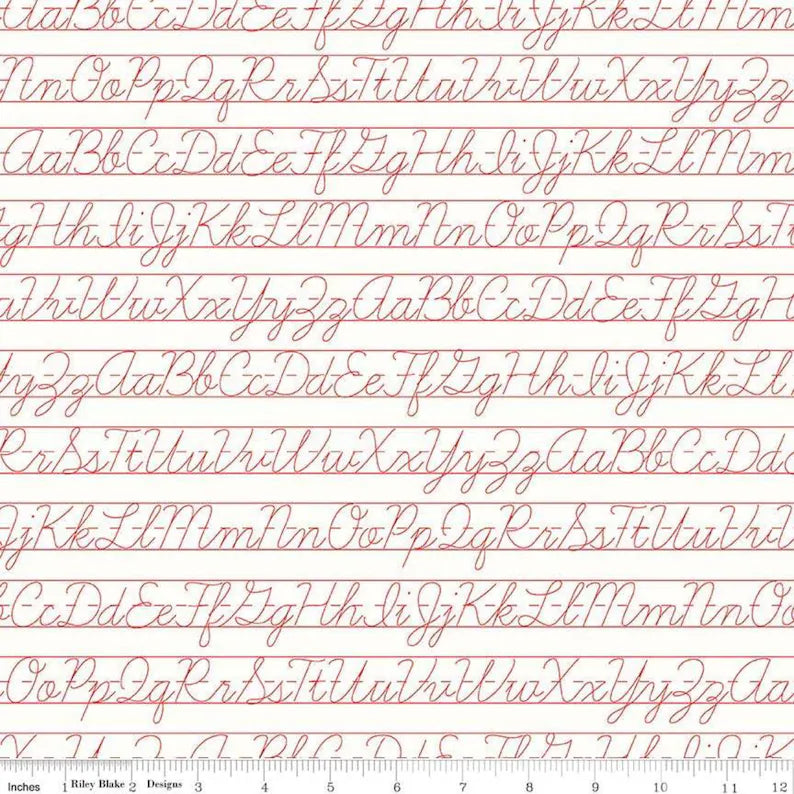 AaBbCcDdEeFfGgHhIiJjKkLlMm
NnOoPpQqRrSsTtUuVvWwXxYyZz
AaBbCcDdEeFfGgHhIiJjKkLlMm
gHhIiJjKkLlMmNnOoPpQqRrSsT
uVvWwXxYyZzAaBbCcDdEeFfGgH
yZzAaBbCcDdEeFfGgHhIiJjKkLl
RrSsTtUuVvWwXxYyZzAaBbCcDd
JjKkLlMmNnOoPpQqRrSsTtUuVv
bCcDdEeFfGgHhIiJjKkLlMmNnOo
OoPpQqRrSsTtUuVvWwXxYyZzAa
XxYyZzAaBbCcDdEeFfGgHhIiJjK
Inches 1 Riley Blake 2 Designs 3 4 5 6 7 8 9 10 11 12